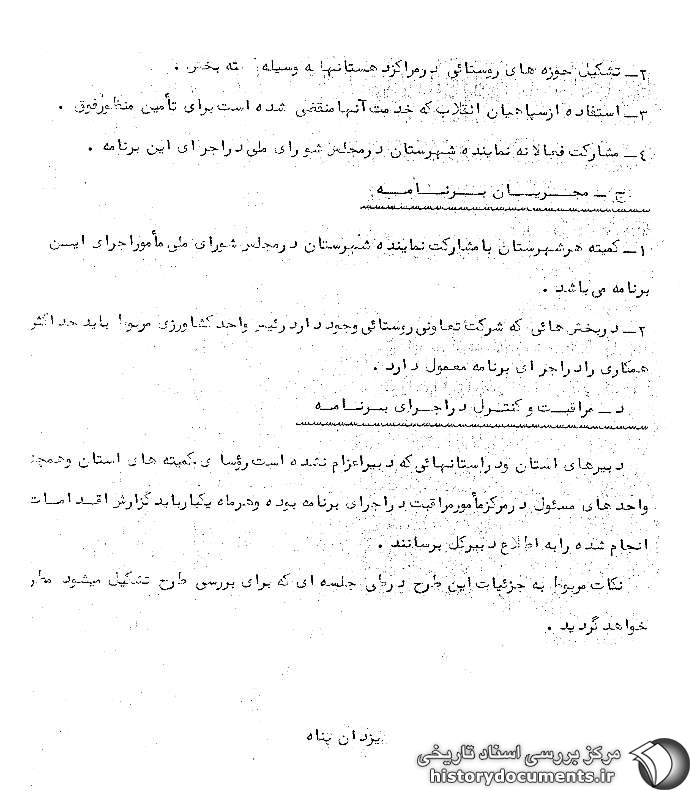 ۲ــ تشکیل حوزه های روستائی درمراکزدهستانها به وسیله کمیته بخش .
۳ــ استفاده ازسپاهیان انقلاب که خدمت آنها منقضی شده است برای تأمین منظورفوق .
٤ــ مشارکت فعالانه نماینده شهرستان درمجلس شورای ملی دراجرای این برنامه .
ج ــ مجریان برنامه
۱ــ کمیته هرشهرستان با مشارکت نماینده شهرستان درمجلس شورای ملی مأموراجرای ایـن
برنامه می باشد .
۲ــ دربخش هائی که شرکت تعاونی روستائی وجود دارد رئیس واحد کشاورزی مربوط باید حد اکثر
همکاری را دراجرای برنامه معمول دارد .
د ــ مراقبت و کنترل دراجرای برنامه
دبیرهای استان ودراستانهائی که دبیراعزام نشده است رؤسای کمیته های استان وهمچن
واحدهای مسئول درمرکزمأمورمراقبت دراجرای برنامه بوده وهرماه یکبارباید گزارش اقدامات
انجام شده رابه اطلاع دبیرکل برسانند .
نکات مربوط به جزئیات این طرح درطی جلسه ای که برای بررسی طرح تشکیل میشود مطر
خواهد گردید .
یزدان پناه
مرکز بررسی اسناد تاریخی
historydocuments.ir